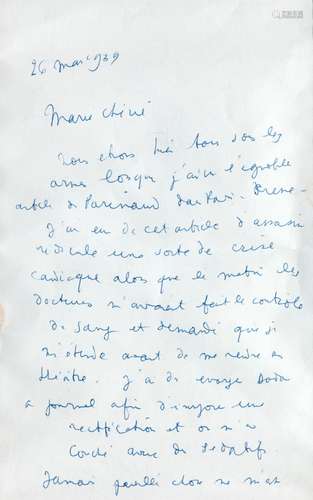 26 mars 1959
Marie chérie
Nous étions hier tous sous les
armes lorsque j'ai lu l'ignoble
article de Parinaud dans Paris-Presse
J'ai eu de cet article d'assassin
ridicule une sorte de crise
cardiaque alors que le matin les
docteurs m'avaient fait le contrôle
du sang et demandé que je
m'étende avant de me rendre au
théâtre. J'ai dû envoyer
à journal afin d'imposer une
rectification et on m'a
couché avec des sédatifs
Jamais pareille chose ne m'est